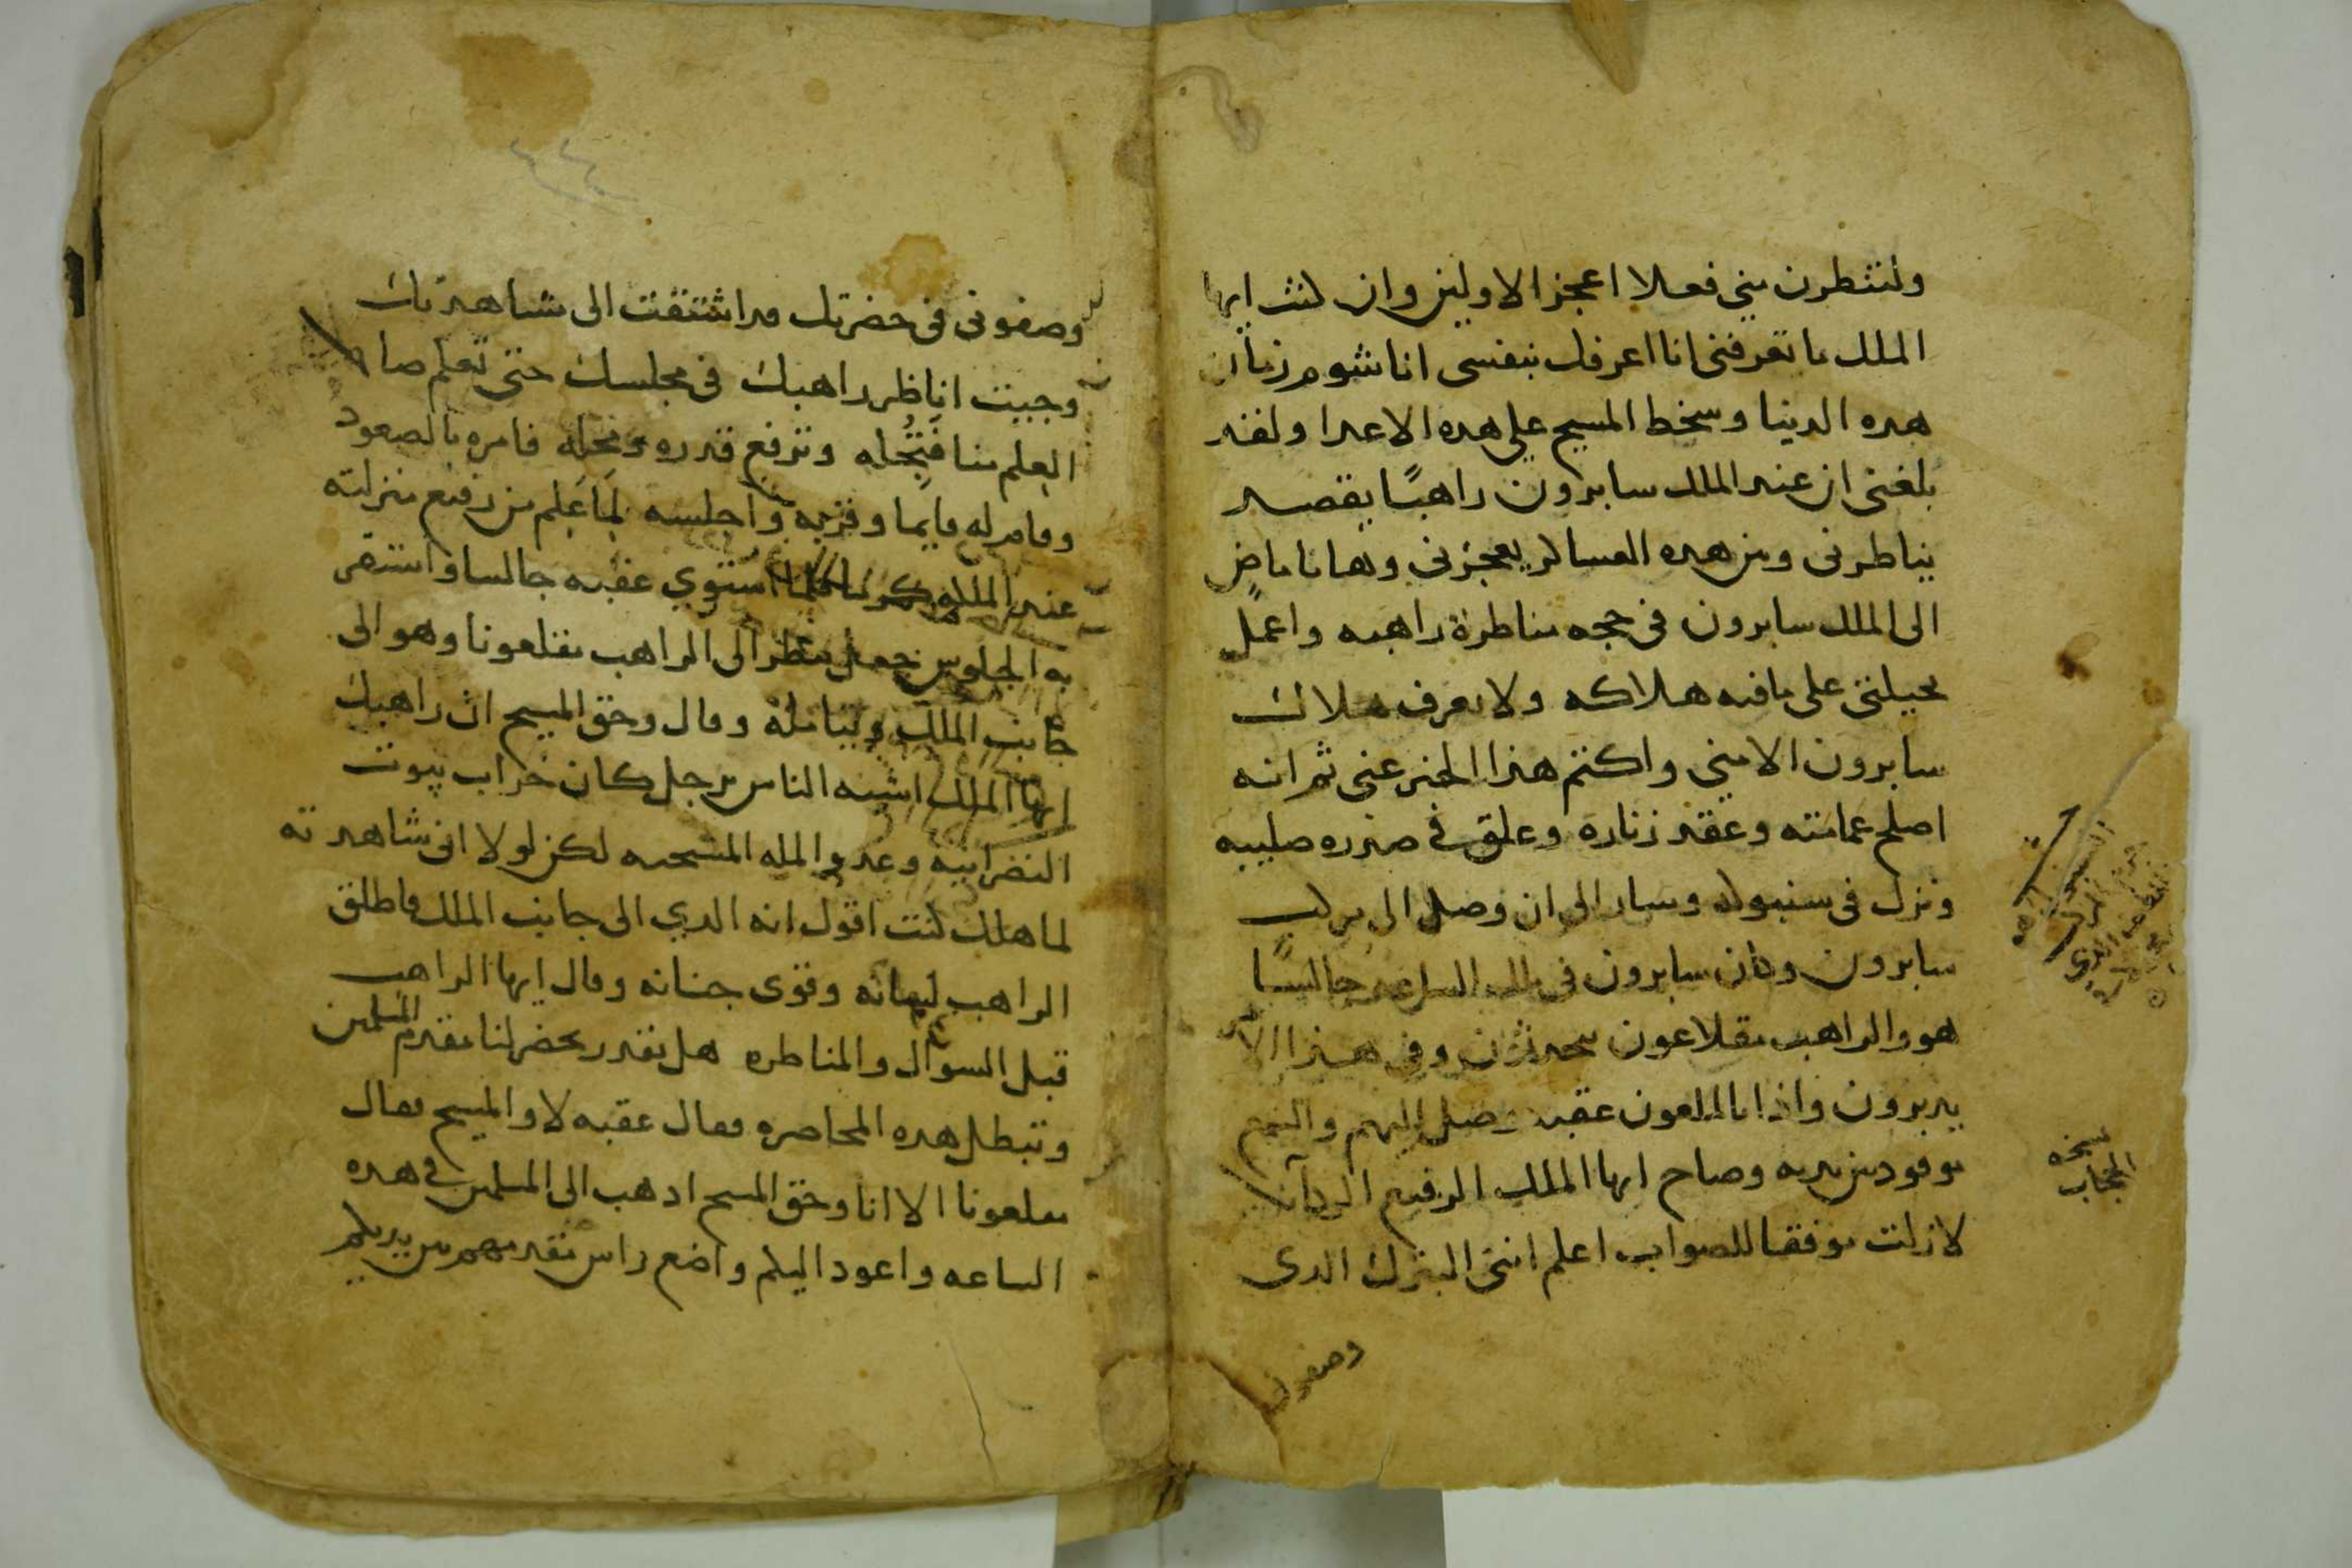 ولتنظرن مني فعلا اعجز الاولين وان كنت ايها
الملك ما تعرفني انا اعرفك بنفسي انا شوم زمان
هده الدنيا وسخط المسيح علي هده الاعدا ولقد
بلغني ان عند الملك سابرون راهبًا يقصد
يناظرني ومن هده العساكر يعجزني وها انا ماضٍ
الى الملك سابرون في حجه مناظرة راهبه واعمل
بحيلتي على ما فيه هلاكه ولا يعرف هلاك
سابرون الا مني واكتم هذا الخبر عني ثم انه
اصلح عمامته وعقد زناره وعلق في صدره صليبه
ونزل في سنبوك وسار الى ان وصل الى مركب
سابرون وكان سابرون في تلك الساعه جالسًا
هو والراهب مقلاعون يتحدثان وفي هذا الامر
يدبرون واذا بالملعون عقبه وصل اليهم والشمع
موقود بين يديه وصاح ايها الملك الرفيع
لازلت موفقا للصواب اعلم انني البترك الدى
وصفوني
نسخه
الحجاب
وصفوني في حضرتك قد اشتقت الى مشاهدتك
وجيت اناظر راهبك في مجلسك حتى تعلم صاحب
العلم منا فتُجِله وترفع قدره ومحله فامره بالصعود
وقام له قايما وقربه واجلسه لِمَا عَلِم من رفيع منزلته
عند الملك استوي عقبه جالسا واستقر
به الجلوس جعل ينظر الى الراهب مقلعونا وهو الى
جانب الملك ويتامله وقال وحق المسيح ان راهبك
ايها الملك اشبه الناس برجل كان خراب بيوت
النصرانيه وعدو المله المسيحيه لكن لولا اني شاهدته
لما هلك لكنت اقول انه الدي الى جانب الملك فاطلق
الراهب لسانه وقوى جنانه وقال ايها الراهب
قبل السوال والمناظره هل تقدر تحضر لنا مقدم المسلمين
وتبطل هده المحاصره فقال عقبه لا والمسيح فقال
مقلعونا الا انا وحق المسيح ادهب الى المسلمين في هده
الساعه واعود اليكم واضع راس مقدمهم بين يديكم